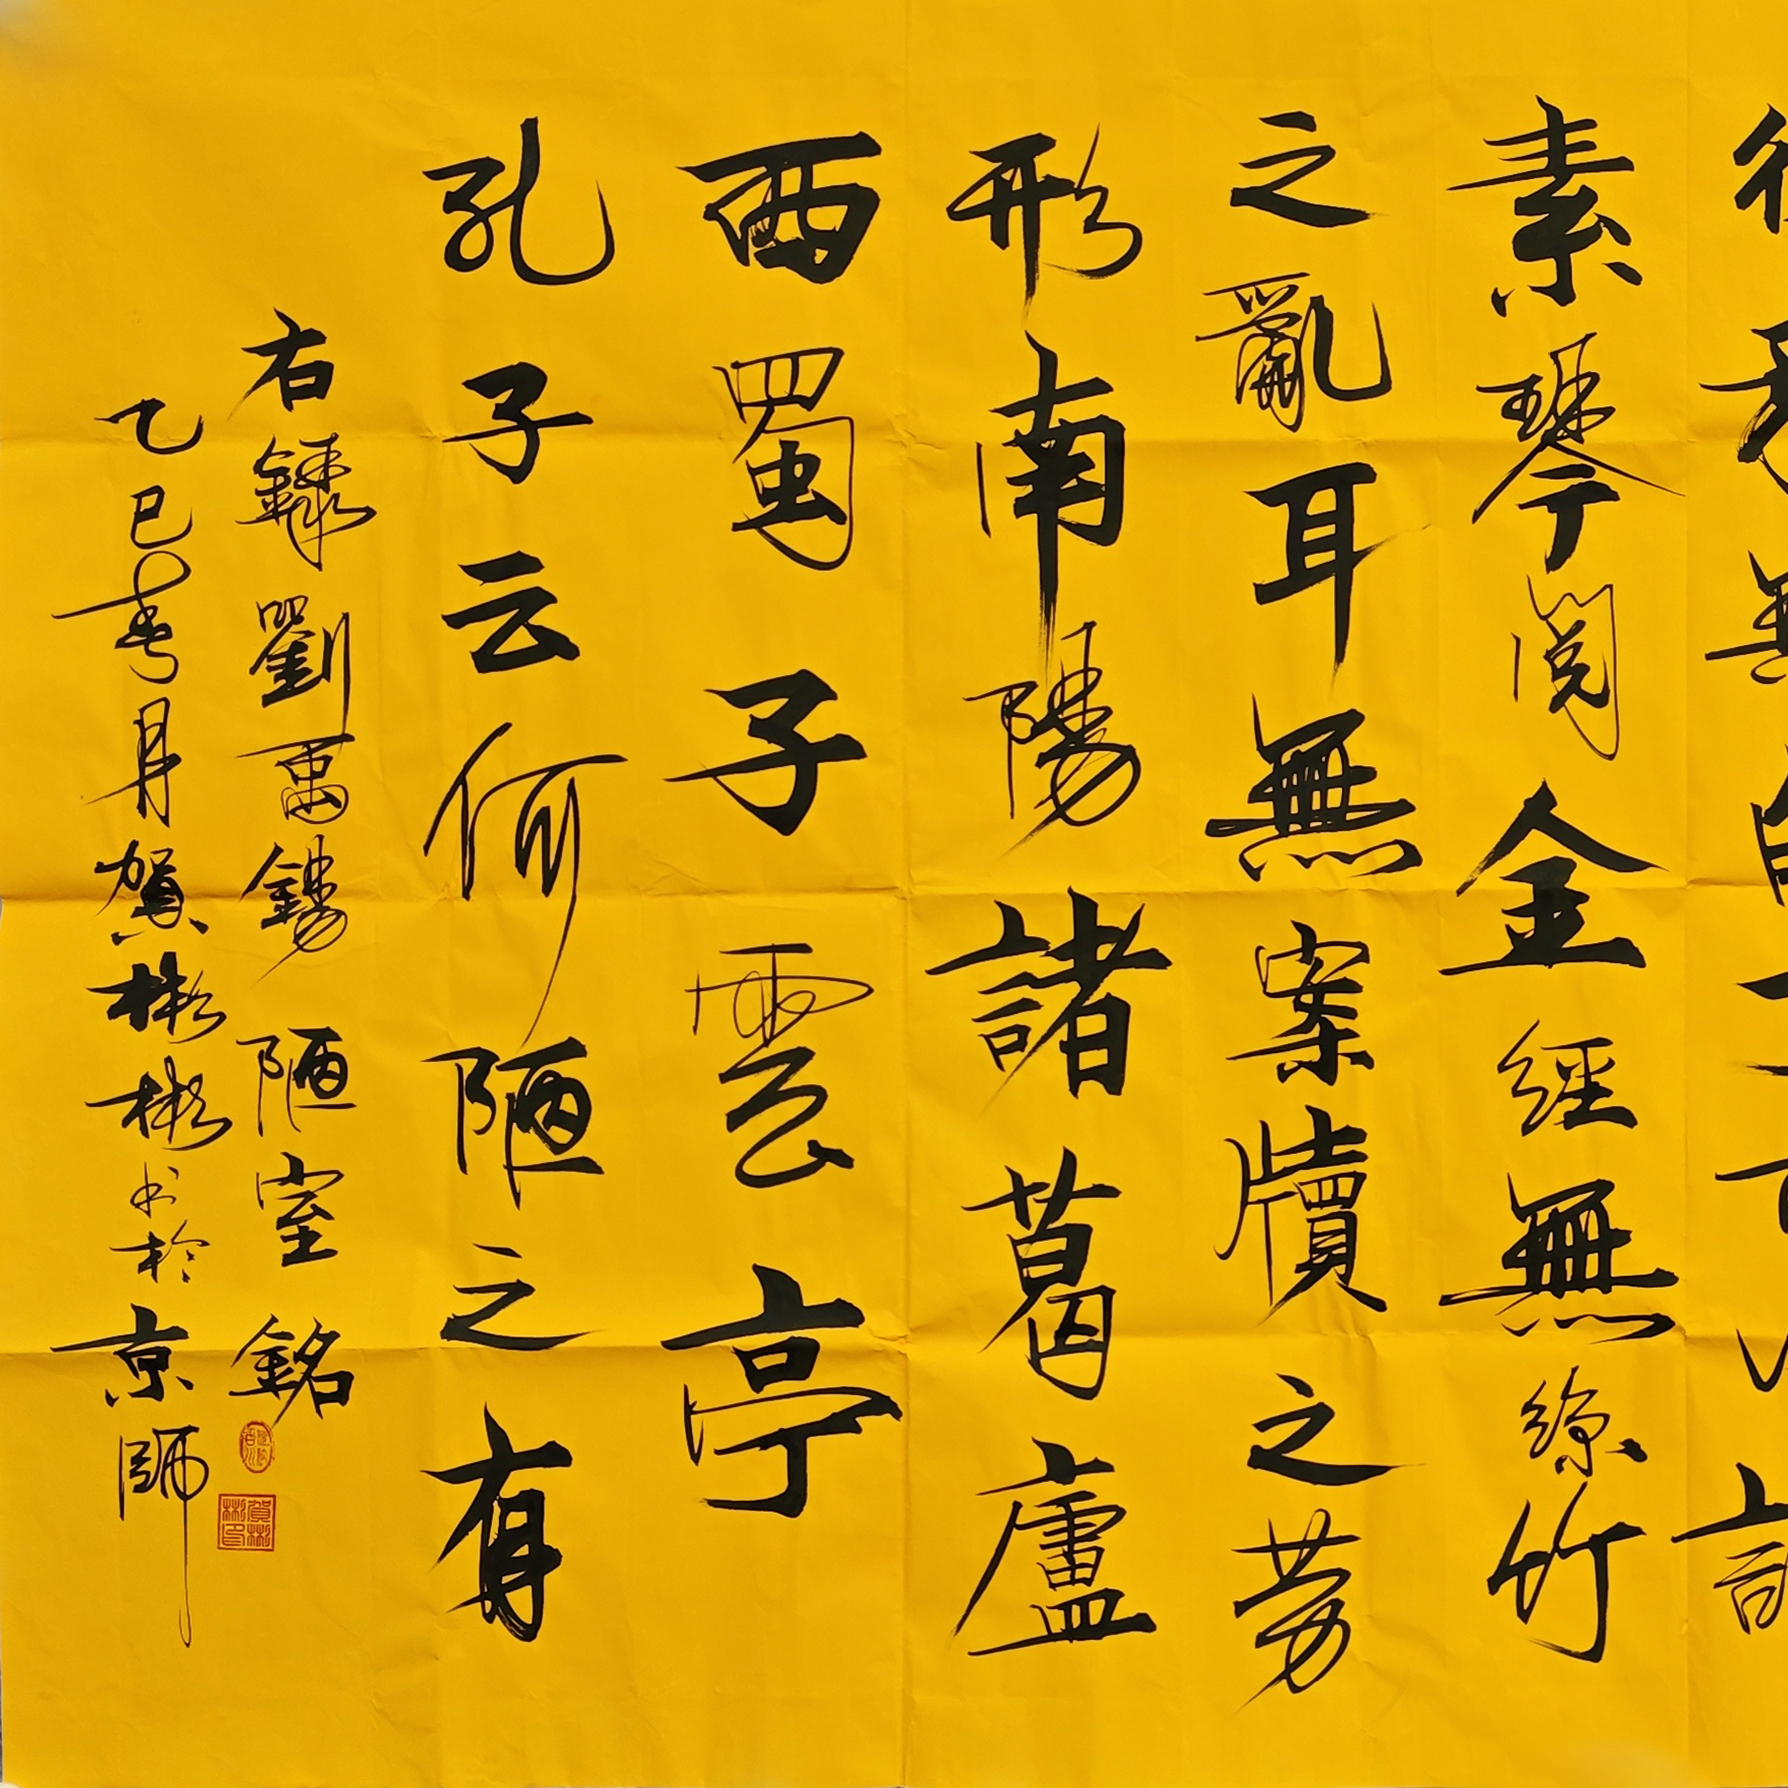 素琴閲金經無絲竹
之亂耳無案牘之劳
形南陽諸葛廬
西蜀子雲亭
孔子云何陋之有
右録劉禹錫陋室銘
乙巳春月賀彬彬书於京師
賀彬彬印